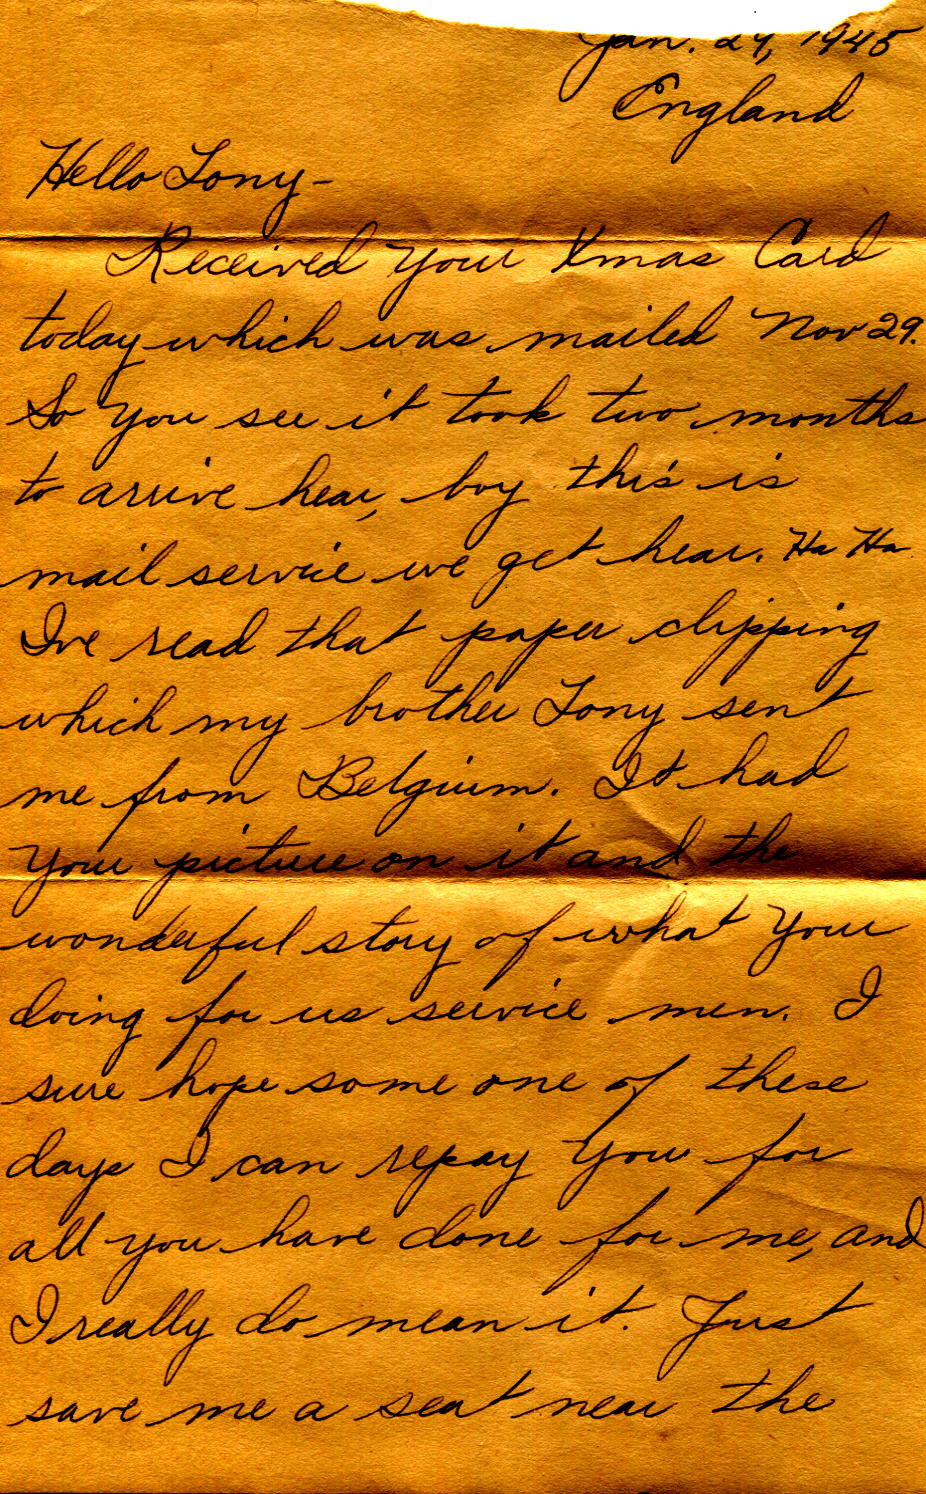 Jan. 29, 1945
England
Hello Tony-
Received your Xmas Card
today which was mailed Nov 29.
So you see it took two months
to arrive hear, boy this is
mail service we get hear. Ha Ha.
Ive read that paper clipping
which my brother Tony sent
me from Belgium. It had
your picture on it and the
wonderful story of what your
doing for us service men. I
sure hope some one of these
days I can repay you for
all you have done for me, and
I really do mean it. Just
save me a seat near the